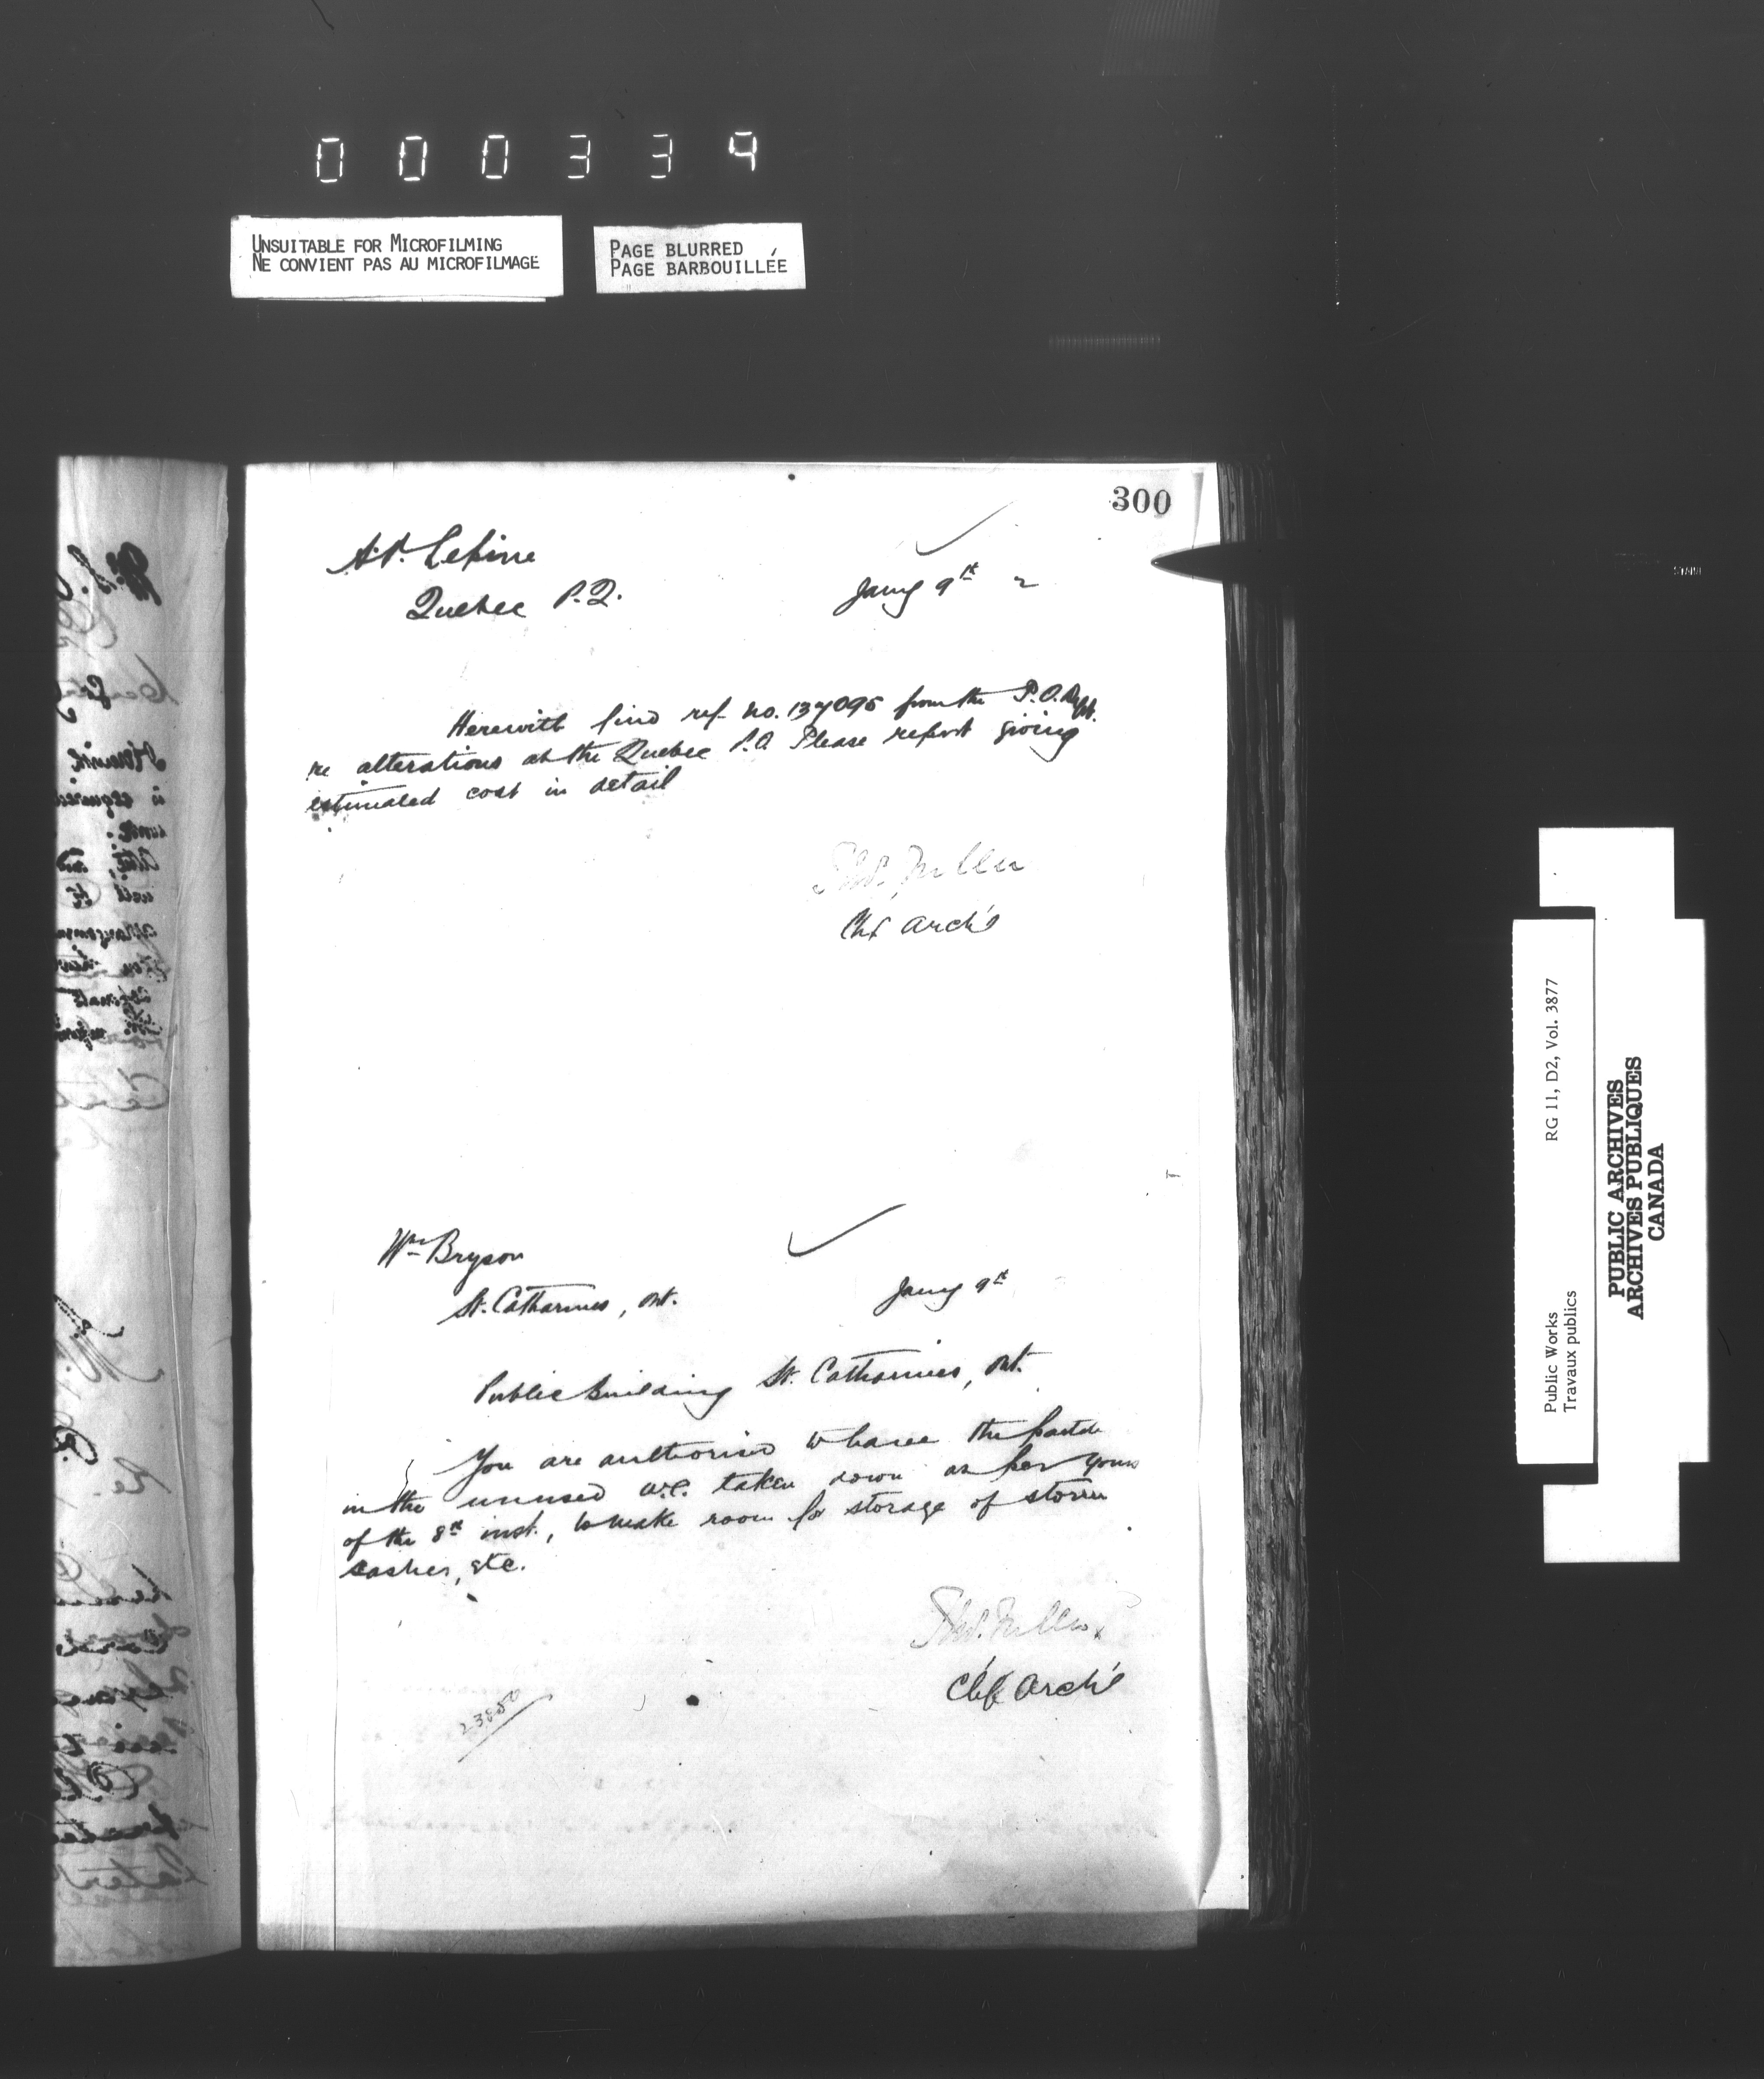 000339
UNSUITABLE FOR MICROFILMING
NE CONVIENT PAS AU MICROFILMAGE
PAGE BLURRED
PAGE BARBOUILLÉE
300
A.P. Lepine
Quebec P.Q.
Jany 9th 2
Herewith find ref. no. 137095 from the P.O. Dept.
re alterations at the Quebec P.O. Please report giving
estimated cost in detail
Thos. Fuller
Chf Arch't
Wm Bryson
St. Catharines, Ont.
Jany 9th
Public building St. Catharines, Ont.
You are authorised to have the
in the unused w.c. taken down as per yours
of the 8th inst., to make room for storage of storm
sashes, etc.
Thos. Fuller
Chf Arch't
23850
Public Works
Travaux publics
RG 11, D2, Vol. 3877
PUBLIC ARCHIVES
ARCHIVES PUBLIQUES
CANADA